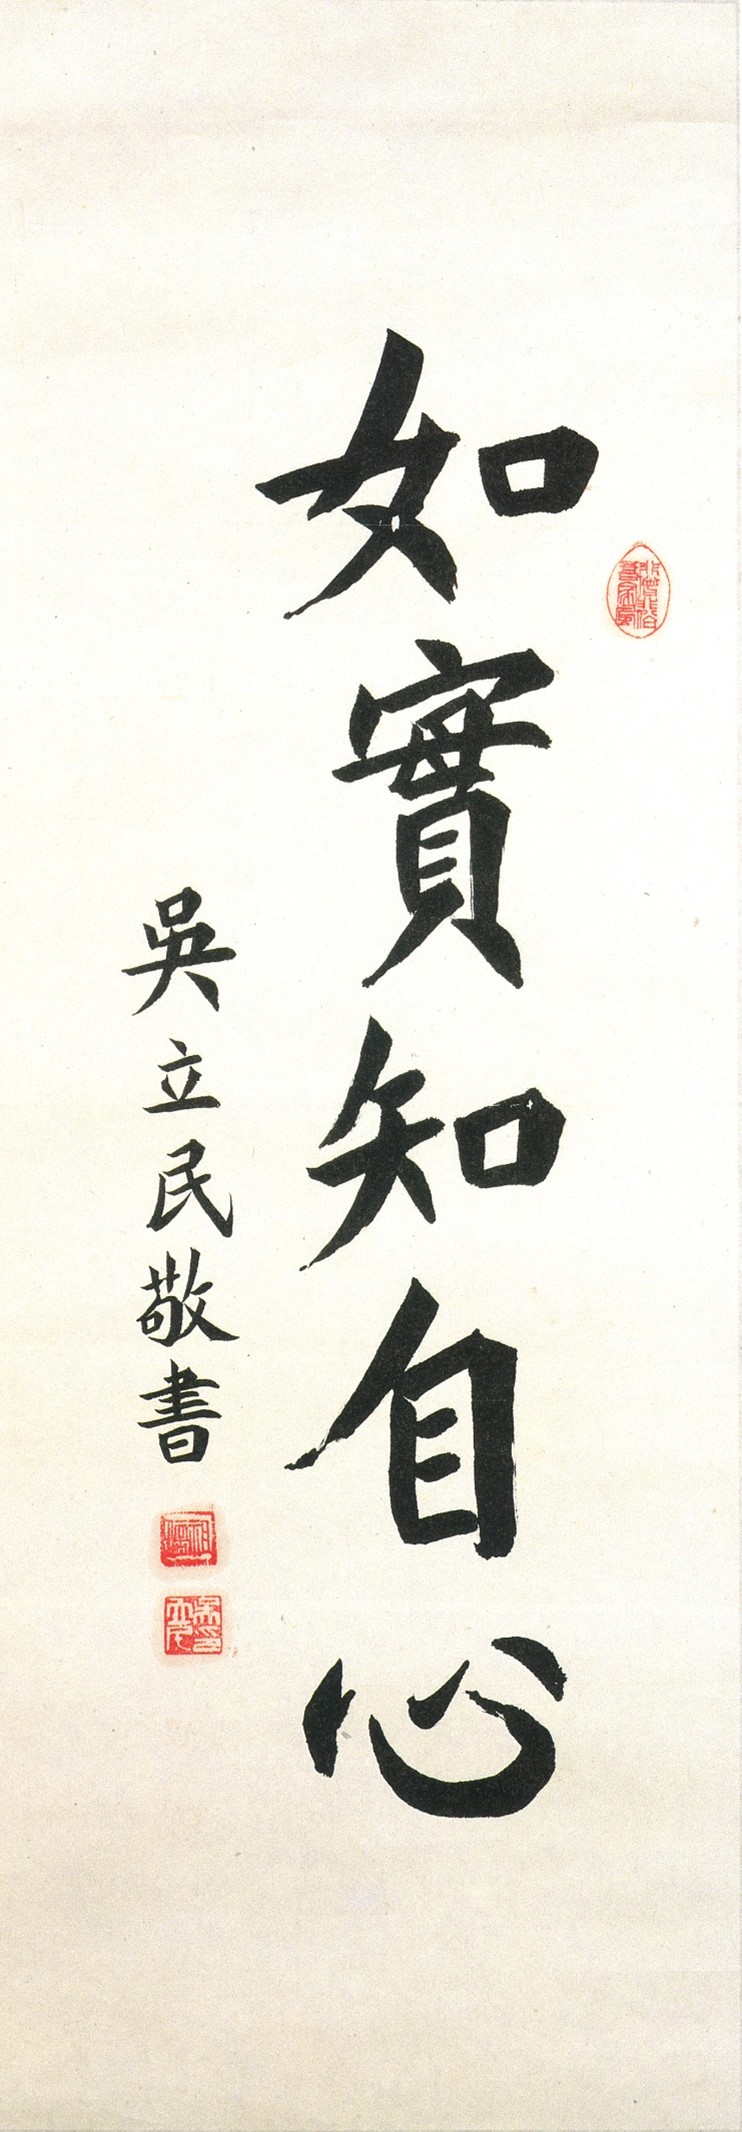 如實知自心
吳立民敬書